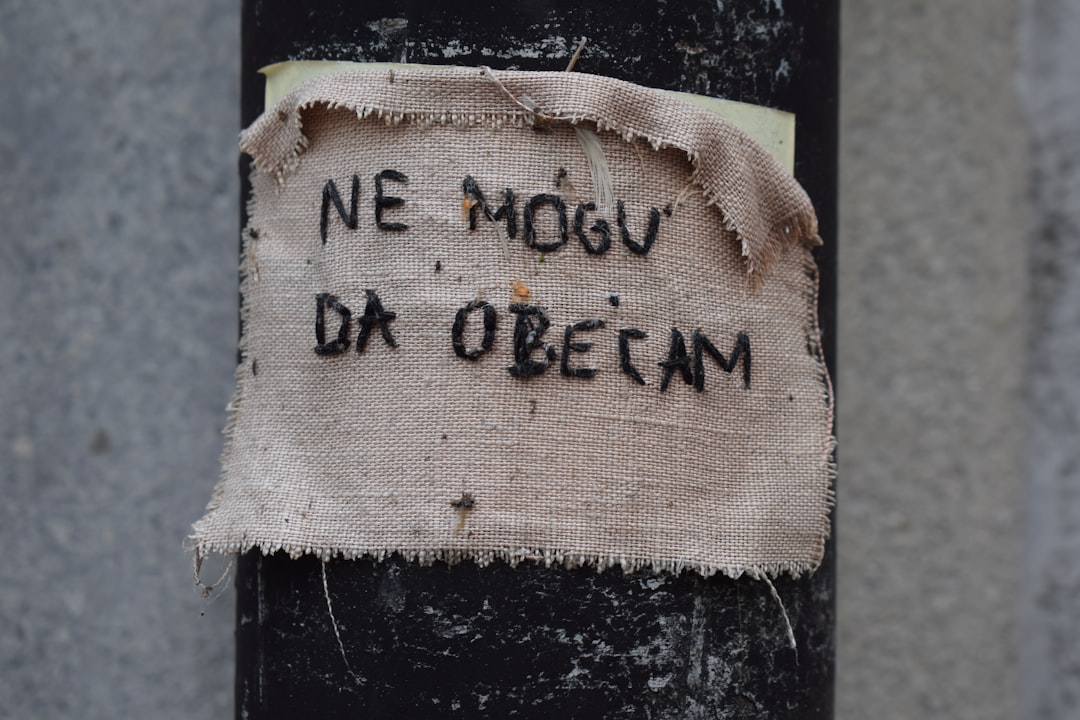 NE MOGU
DA OBEĆAM